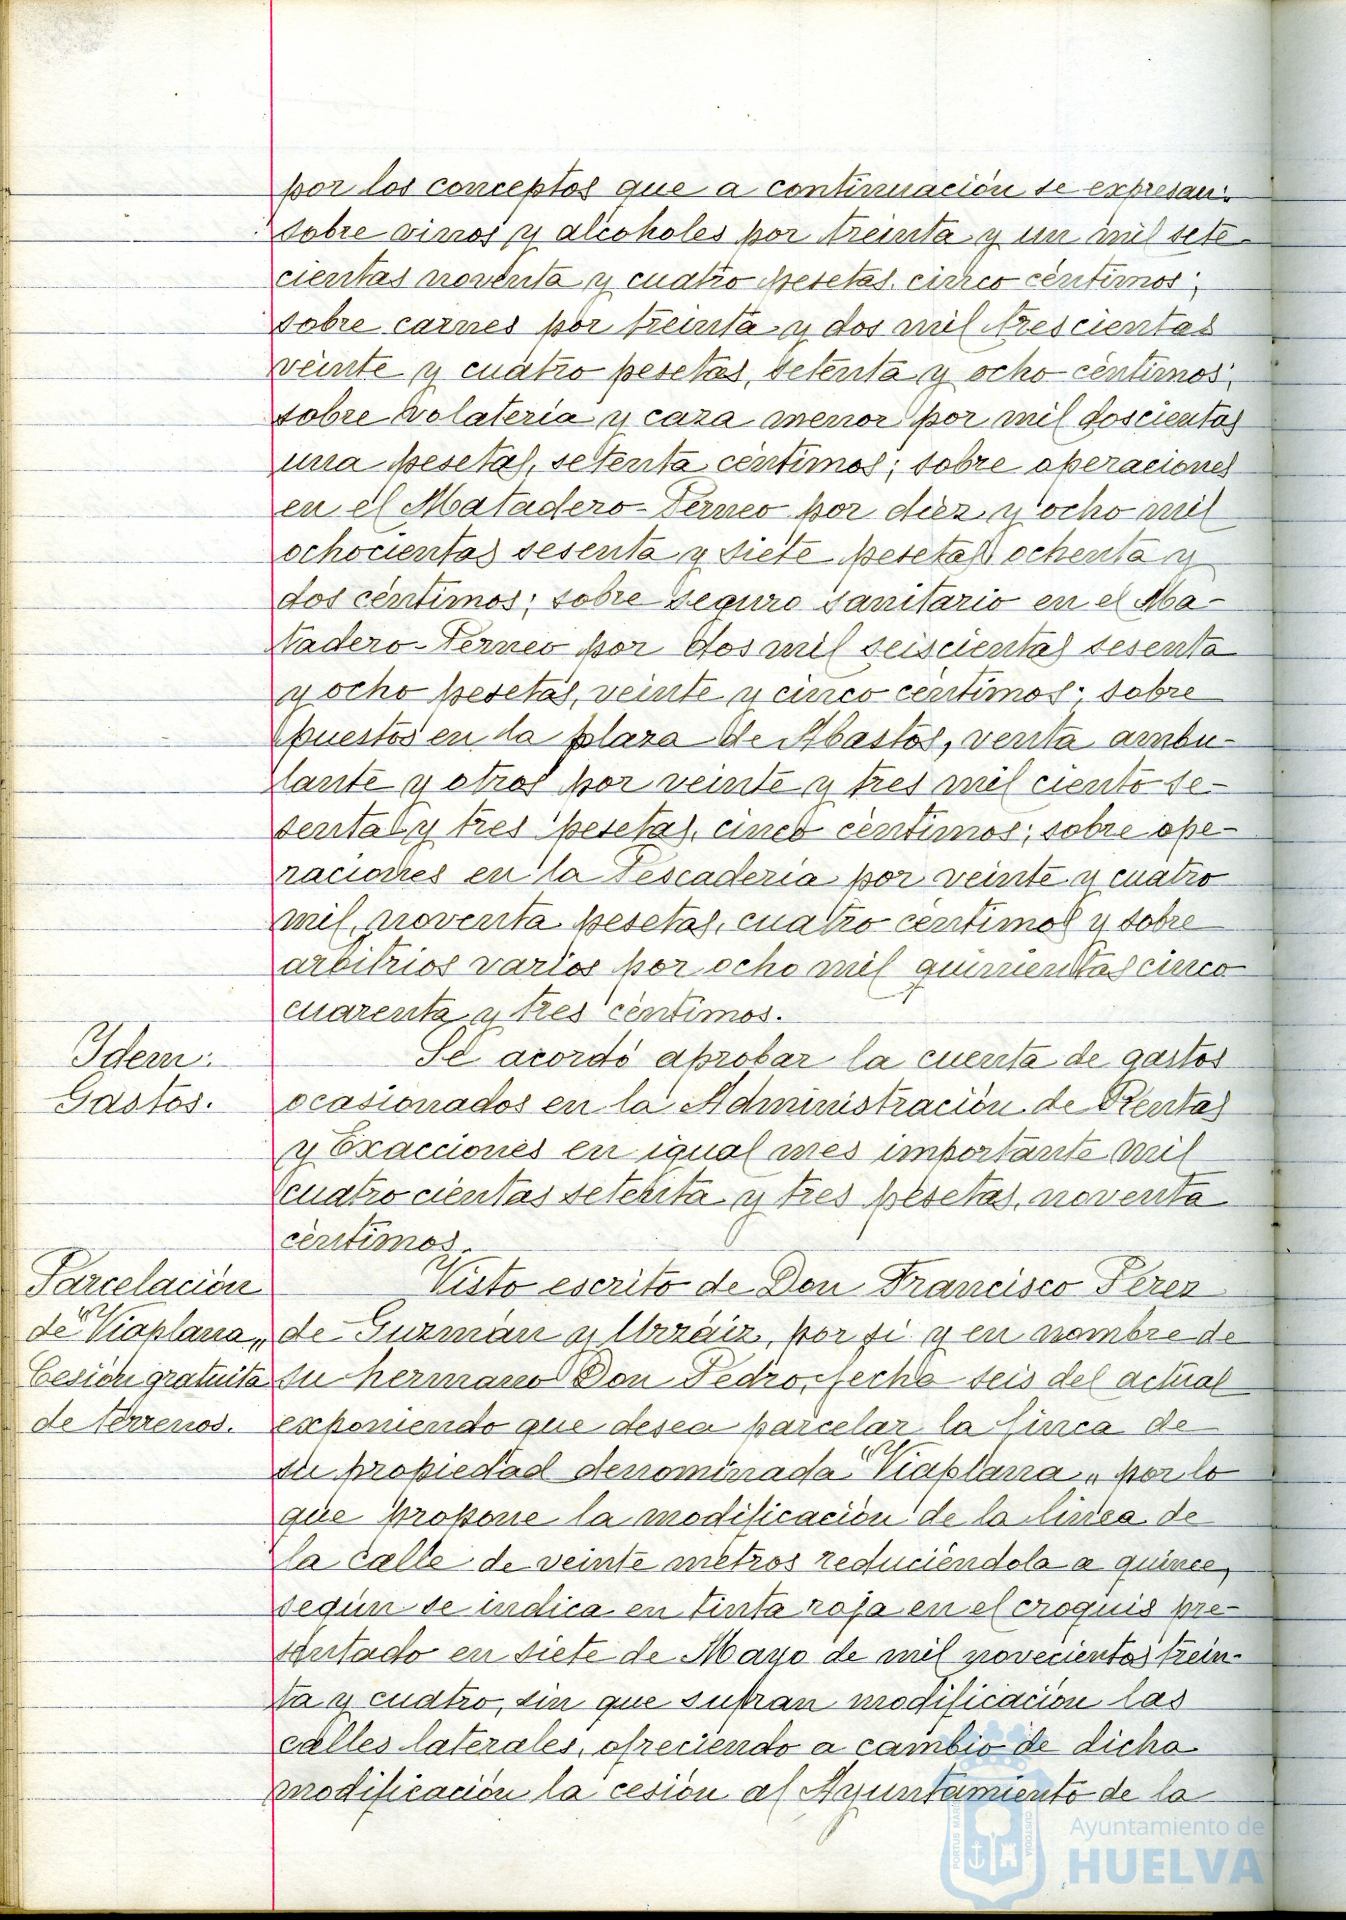 por los conceptos que a continuación se expresan:
sobre vinos y alcoholes por treinta y un mil sete-
cientas noventa y cuatro pesetas, cinco céntimos;
sobre carnes por treinta y dos mil trescientas
veinte y cuatro pesetas, setenta y ocho céntimos;
sobre volatería y caza menor por mil doscientas
una pesetas, setenta céntimos; sobre operaciones
en el Matadero-Perneo por diez y ocho mil
ochocientas sesenta y siete pesetas ochenta y
dos céntimos; sobre seguro sanitario en el Ma-
tadero-Perneo por dos mil seiscientas sesenta
y ocho pesetas, veinte y cinco céntimos; sobre
puestos en la plaza de Abastos, venta ambu-
lante y otros por veinte y tres mil ciento se-
senta y tres pesetas, cinco céntimos; sobre ope-
raciones en la Pescadería por veinte y cuatro
mil, noventa pesetas, cuatro céntimos y sobre
arbitrios varios por ocho mil quinientas cinco
cuarenta y tres céntimos.
Ydem:
Gastos.
Se acordó aprobar la cuenta de gastos
ocasionados en la Administración de Rentas
y Exacciones en igual mes importante mil
cuatrocientas setenta y tres pesetas, noventa
céntimos.
Parcelación
de "Viaplana"
Cesión gratuita
de terrenos.
Visto escrito de Don Francisco Pérez
de Guzmán y Urzáiz, por sí y en nombre de
su hermano Don Pedro, fecha seis del actual
exponiendo que desea parcelar la finca de
su propiedad denominada "Viaplana" por lo
que propone la modificación de la línea de
la calle de veinte metros reduciéndola a quince,
según se indica en tinta roja en el croquis pre-
sentado en siete de Mayo de mil novecientos trein-
ta y cuatro, sin que sufran modificación las
calles laterales, ofreciendo a cambio de dicha
modificación la cesión al Ayuntamiento de la
PORTUS MARIS
CUSTODIA
Ayuntamiento de
HUELVA